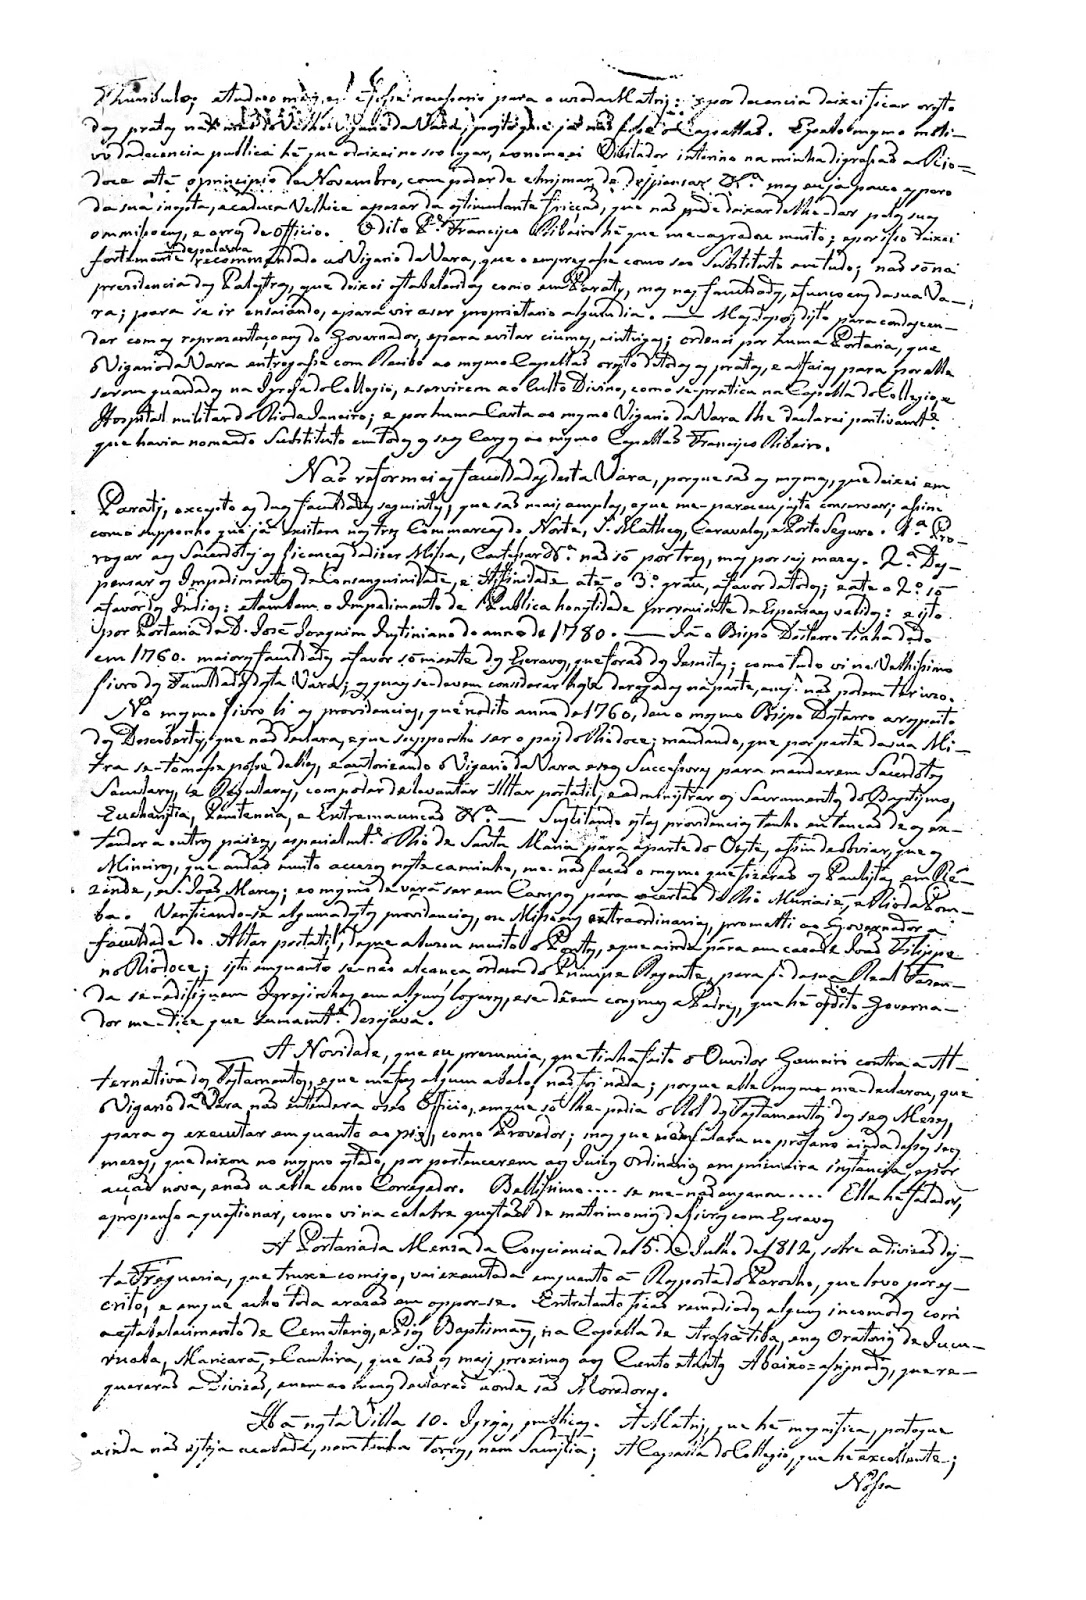 Thuribulo; e tudo o mais, q̃ fosse necessario para o uso da Matriz: e por decencia deixei ficar o resto
das pratas na mão do Velho Vigario da Vara, posto que já não fosse o Capellão. E pelo mesmo moti-
vo da decencia publica hé que o deixei no seo logar, e o nomeei Visitador interino na minha digressão ao Rio-
doce até o principio de Novembro, com poder de chrismar, de dispensar &.ª mas eu já pouco espero
da sua inepta, e caduca Velhice apezar da estimulante fricção, que não pude deixar de lhe dar pelas suas
ommissoens, e erros de officio. O dito P.e Francisco Ribeiro hé que me-agradou muito; e por isso deixei
fortemente de palavra recommendado ao Vigario da Vara, que o empregasse como seo Substituto em tudo; não só na
presidencia das Palestras, que deixei estabelecidas como em Paraty, mas nas faculdades, e funcoens da sua Va-
ra; para se ir ensaiando, e para vir a ser proprietario algum dia. — Mas depois disto para condescen-
der com as reprezentaçoens do Governador, e para evitar ciumes, e intrigas; ordenei por huma Portaria, que
o Vigario da Vara entregasse com Recibo ao mesmo Capellão o resto de todas as pratas, e alfaias para por elle
serem guardadas na Igreja do Collegio, e servirem ao Culto Divino, como se-pratica na Capella do Collegio, e
Hospital militar do Rio de Janeiro; e por huma Carta ao mesmo Vigario da Vara lhe declarei pozitivamt.e
que havia nomeado Substituto em todos os seus Cargos ao mesmo Capellão Francisco Ribeiro.
Não reformei as faculdades desta Vara, porque são as mesmas, que deixei em
Parati, excepto as duas faculdades seguintes, que são mais amplas, e que me-pareceu justo conservar; assim
como supponho que já existem nas tres Commarcas do Norte, S. Matheus, Caravelas, e Porto Seguro. 1.ª Pro-
rogar aos Sacerdotes as licenças de dizer Missa, Confessar &.ª não só por tres, mas por seis mezes. 2.ª Dis-
pensar os Impedimentos de Consanguinidade, e Affinidade até o 3.º gráu, a favor de todos; e até o 2.º só
a favor dos Indios: e tambem o Impedimento de Publica honestidade proveniente de Esponsaes validos: e isto
por Portaria de D. José Joaquim Justiniano do anno de 1780. — Já o Bispo Desterro tinha dado
em 1760. maiores faculdades a favor sómente dos Escravos, que forão dos Jesuitas; como tudo vi no Velhissimo
livro das Faculdades desta Vara; as quaes se-devem considerar hoje derogadas na parte, em q̃ não podem ter uzo.
No mesmo livro li as providencias, que no dito anno de 1760, deu o mesmo Bispo Desterro a respeito
dos Descobertos, que não declara, e que supponho ser o paiz do Riodoce; mandando, que por parte da sua Mi-
tra se-tomasse posse delles, e autorizando o Vigario da Vara e seos Successores para mandarem Sacerdotes
Seculares, e Regulares, com poder de levantar Altar portatil, e administrar os Sacramentos do Baptismo,
Eucharistia, Penitencia, e Extremaunção &.ª — Suscitando estas providencias tenho entenção de as ex-
tender a outros paizes, especialmt.e o Rio de Santa Maria para a parte do Oeste, a fim de obviar, que os
Mineiros, que andão muito accezos neste caminho, me-não fação o mesmo que fizerão os Paulistas em Re-
zende, e S. João Marcos; e o mesmo deverá ser em Campos para o certão do Rio Muriaié, e Rio da Pom-
ba. Verificando-se algumas destas providencias, ou Missoens extraordinarias, prometti ao Governador a
faculdade de Altar portatil, de que abuzou muito o Pontes, e que ainda pára em caza de João Filippe
no Riodoce; isto emquanto se-não alcança ordem do Principe Regente, para q̃ da sua Real Fazen-
da se-edifiquem Igrejinhas em alguns logares, e se-dêem congruas a Padres, que hé o q̃ o dito Governa-
dor me-dice que summamt.e desejava.
A Novidade, que eu prezumia, que tinha feito o Ouvidor Gameiro contra a Al-
ternativa dos Testamentos, e que me fez algum abalo, não foi nada; porque elle mesmo me-declarou, que
o Vigario da Vara não entendera o seo Officio, em que só lhe-pedia o Rol dos Testamentos dos seos Mezes,
para os executar em quanto ao pio, como Provedor; mas que nem falara no profano ainda desses seos
mezes, que deixou no mesmo estado, por pertencerem aos Juizes Ordinarios em primeira instancia, e por
acção nova, e não a elle como Corregedor. Bellissimo.... se me-não enganou.... Elle he falador,
e propenso a questionar, como vi na celebre questão de matrimonios de livres com Escravos
A Portaria da Meza da Consciencia de 15. de Julho de 1812, sobre a divizão des-
ta Freguezia, que truxe comigo, vai executada emquanto á Resposta do Parocho, que levo por es-
crito, e em que acho toda a razão em oppor-se. Entretanto ficão remediados alguns incomodos com
o estabelecimento de Cemeterios, e Pias Baptismaes, na Capella de Arassatiba, e nos Oratorios de Jucu-
ruaba, Maricará, e Cauhira, que são os mais proximos aos Cento e tantos Abaixo=assignados, que re-
quererão a Divizão, e nem ao menos declararão aonde são Moradores.
Há nesta Villa 10. Igrejas publicas. A Matriz, que hé magnifica, postoque
ainda não esteja acabada, nem tenha Torres, nem Sacristia; A Capella do Collegio, que hé excellente;
Nossa